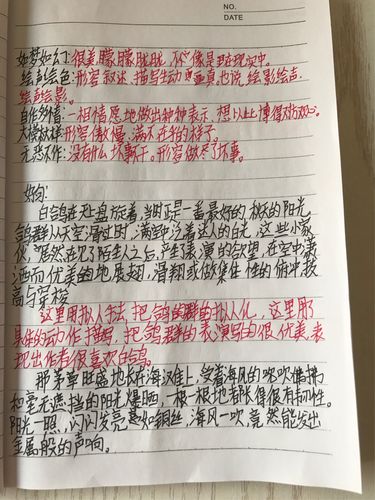 NO.
DATE
如梦如幻:很美,朦朦胧胧,不像是在现实中。
绘声绘色:形容叙述、描写生动逼真。也说绘影绘声、
绘声绘影。
自作多情:一相情愿地做出种种表示,想以此博得对方欢心。
大模大样:形容傲慢、满不在乎的样子。
无恶不作:没有什么坏事不干。形容做尽了坏事。
好句:
白鸽在天上盘旋着,当时正是一番最好的秋的阳光
鸽群从天空滑过时,满空中泛着迷人的白光,这些小家
伙,突然在见了陌生人之后,产生表演的欲望,在空中潇
洒而优美地展翅,滑翔或做集体性的俯冲,拔
高与穿梭
这里用拟人手法,把鸽的群的拟人化,这里用
具体的动作描写,把鸽群的表演写的很优美,表
现出作者很喜欢白鸽。
那茅草旺盛地长在海滩上,受着海风的吹吹拂拂
和毫无遮挡的阳光爆晒,一根一根地都长得很有韧性。
阳光一照,闪闪发亮是如铜丝,海风一吹,竟然能发出
金属般的声响。